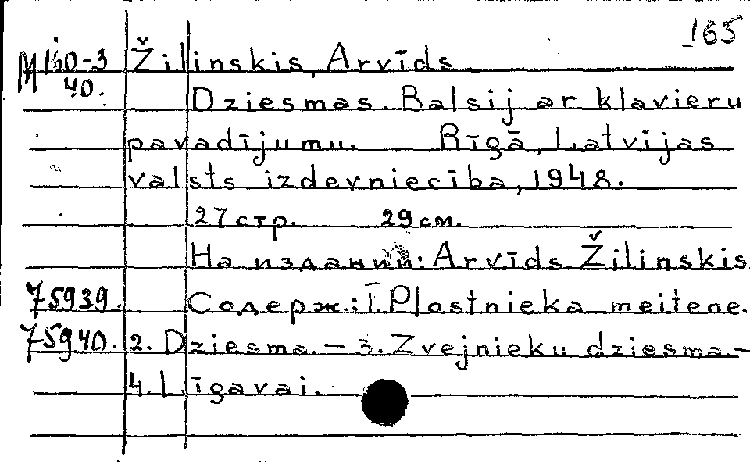 165
M160-3 Žilinskis, Arvīds
40.
Dziesmas. Balsij ar klavieru
pavadījumu. Rīgā, Latvijas
valsts izdevniecība, 1948.
27 стр. 29 см.
На издании: Arvīds Žilinskis
75939. Содерж.: 1. Plostnieka meitene.
75940. 2. Dziesma. – 3. Zvejnieku dziesma. –
4. Līgavai.